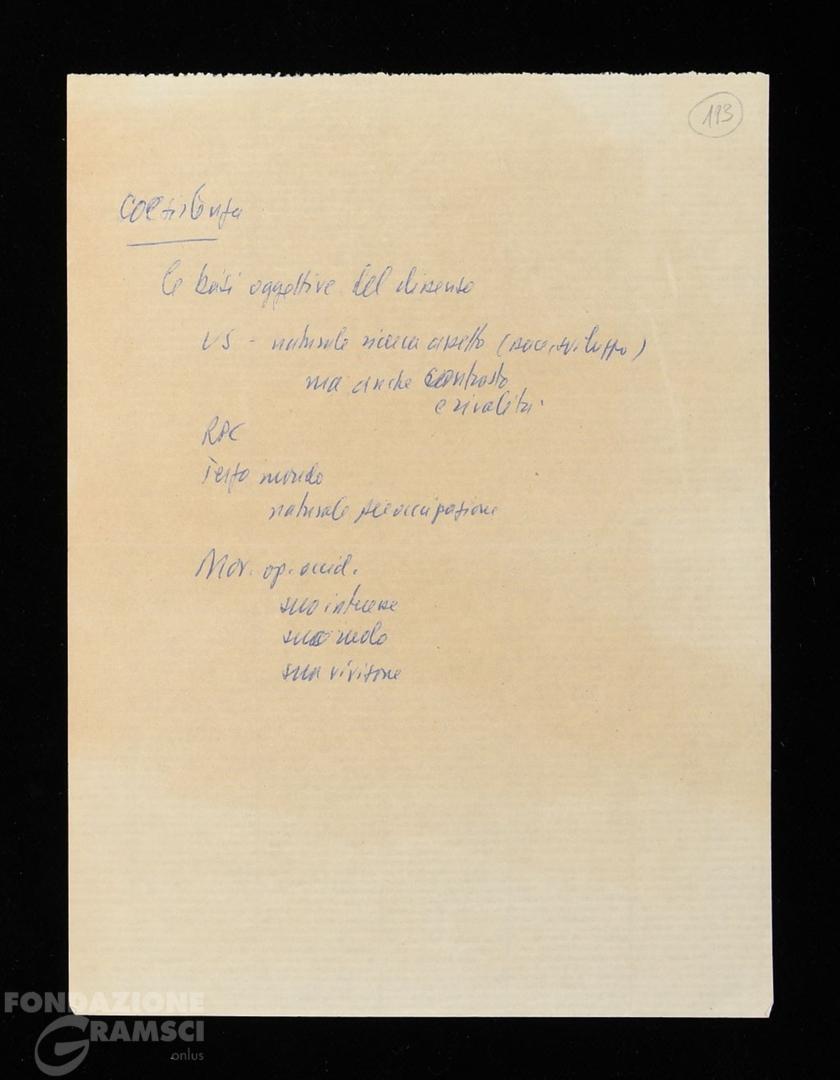 193
coesistenza
le basi oggettive del dissenso
US - naturale ricerca assetto (pace, sviluppo)
ma anche contrasto
e rivalità.
RPC
Terzo mondo
naturale preoccupazione
Mov. op. occid.
suo interesse
suo ruolo
sua visione
FONDAZIONE
GRAMSCI
onlus